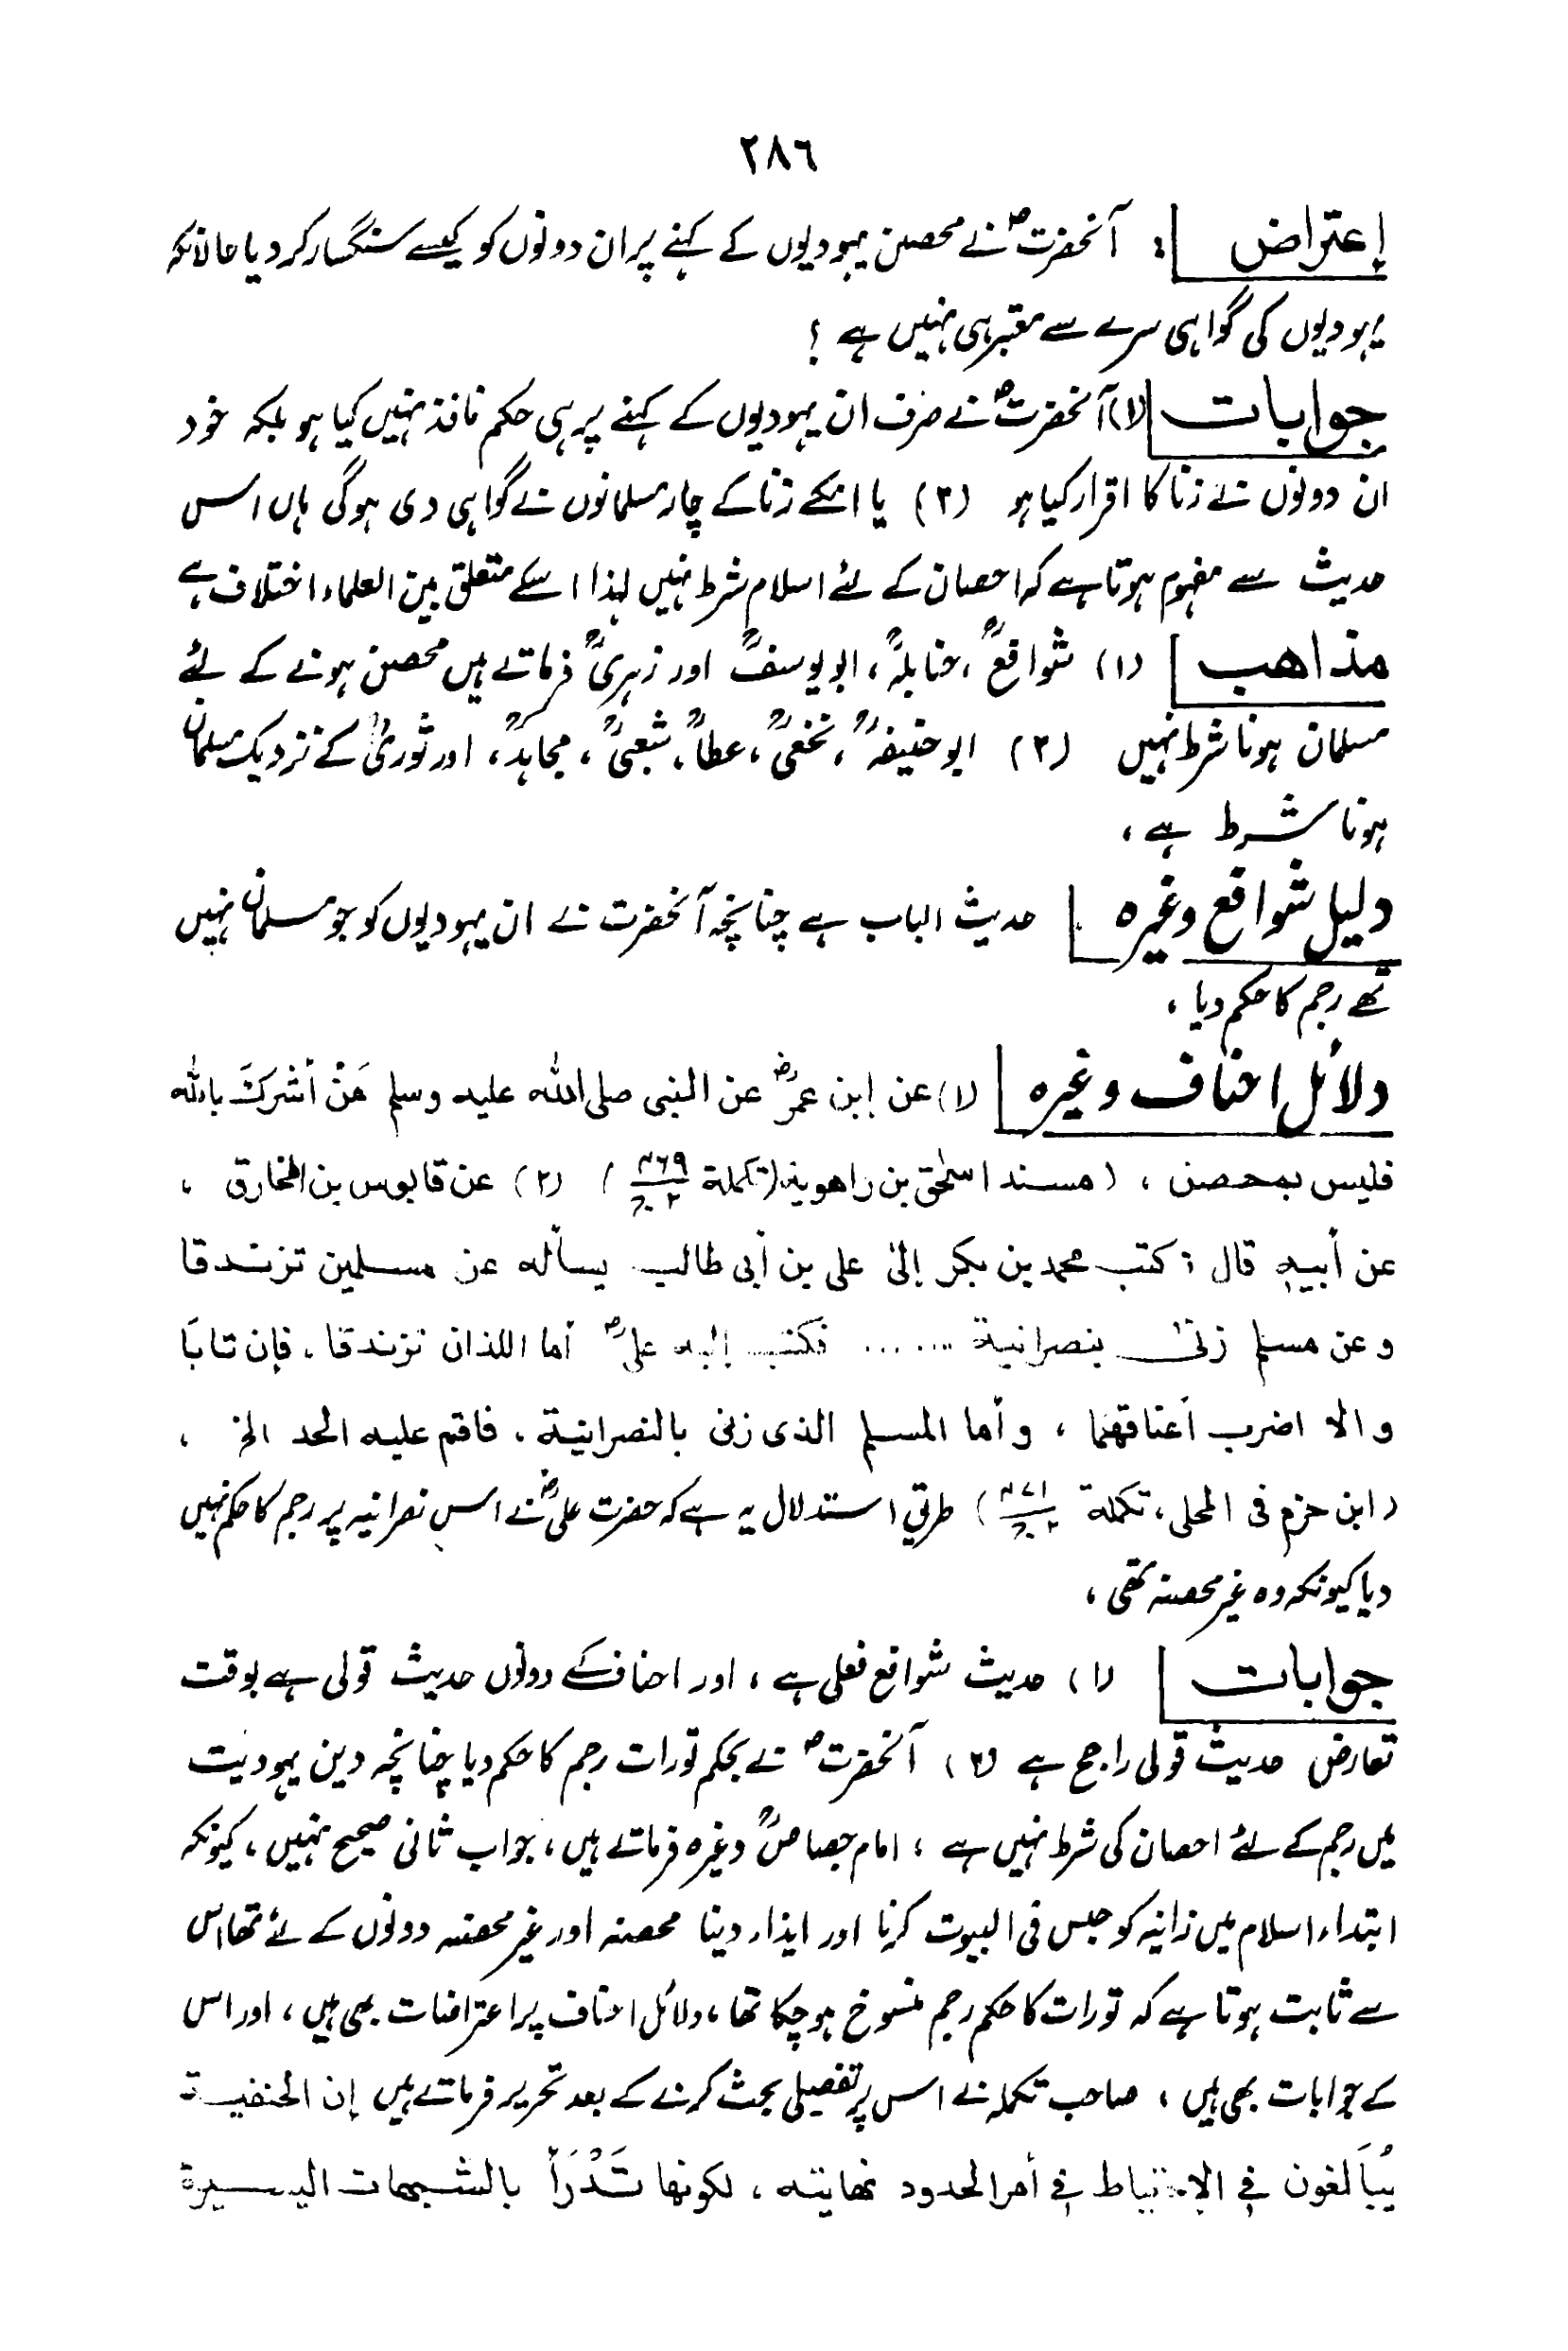 ٢٨٦
إعتراض : آنحضرتؐ نے محصن یہودیوں کے کہنے پر ان دونوں کو کیسے سنگسار کر دیا حالانکہ
یہودیوں کی گواہی سرے سے معتبر ہی نہیں ہے ؟
جوابات (١) آنحضرتؐ نے صرف ان یہودیوں کے کہنے پر ہی حکم نافذ نہیں کیا ہو بلکہ خود
ان دونوں نے زنا کا اقرار کیا ہو (٢) یا انکے زنا کے چار مسلمانوں نے گواہی دی ہوگی ہاں اس
حدیث سے مفہوم ہوتا ہے کہ احصان کے لئے اسلام شرط نہیں لہذا اسکے متعلق بین العلماء اختلاف ہے
مذاهب (١) شوافعؒ ، حنابلہؒ ، ابویوسفؒ اور زہریؒ فرماتے ہیں محصن ہونے کے لئے
مسلمان ہونا شرط نہیں (٢) ابوحنیفہؒ ، نخعیؒ ، عطاؒ ، شعبیؒ ، مجاہدؒ ، اور ثوریؒ کے نزدیک مسلمان
ہونا شرط ہے ،
دلیل شوافع وغیرہ حدیث الباب ہے چنانچہ آنحضرت نے ان یہودیوں کو جو مسلمان نہیں
تھے رجم کا حکم دیا ،
دلائل احناف وغیرہ (١) عن إبن عمرؓ عن النبی صلی اللہ علیہ وسلم مَنْ أشركَ باللہ
فلیس بمحصن ، (مسند اسحٰق بن راهویہ (تکملة ٤٦٩/ج٢) (٢) عن قابوس بن المخارق ،
عن أبیہ قال : کتب محمد بن بکر إلیٰ علی بن أبی طالب یسألہ عن مسلمین تزندقا
وعن مسلم زنیٰ بنصرانیة ...... فکتب إلیہ علیؓ أما اللذان تزندقا ، فإن تابَا
والا اضرب أعناقهما ، وأما المسلم الذی زنی بالنصرانیة ، فاقم علیہ الحد الخ ،
(ابن حزم فی المحلی ، تکملة ٤٧١/ج٢) طریق استدلال یہ ہے کہ حضرت علیؓ نے اس نصرانیہ پر رجم کا حکم نہیں
دیا کیونکہ وہ غیر محصنہ تھی ،
جوابات (١) حدیث شوافع فعلی ہے ، اور احناف کے دونوں حدیث قولی ہے بوقت
تعارض حدیث قولی راجح ہے (٢) آنحضرتؐ نے بحکم تورات رجم کا حکم دیا چنانچہ دین یہودیت
میں رجم کے لئے احصان کی شرط نہیں ہے ، امام جصاصؒ وغیرہ فرماتے ہیں ، جواب ثانی صحیح نہیں ، کیونکہ
ابتداء اسلام میں زانیہ کو حبس فی البیوت کرنا اور ایذاء دینا محصنہ اور غیر محصنہ دونوں کے لئے تھا اس
سے ثابت ہوتا ہے کہ تورات کا حکم رجم منسوخ ہو چکا تھا ، دلائل احناف پر اعتراضات بھی ہیں ، اور اس
کے جوابات بھی ہیں ، صاحب تکملہ نے اس پر تفصیلی بحث کرنے کے بعد تحریر فرماتے ہیں إن الحنفیة
یُبَالغون في الإحتیاط في أمر الحدود نهایتہ ، لکونها تَدْرَأ بالشبهات الیسیرة